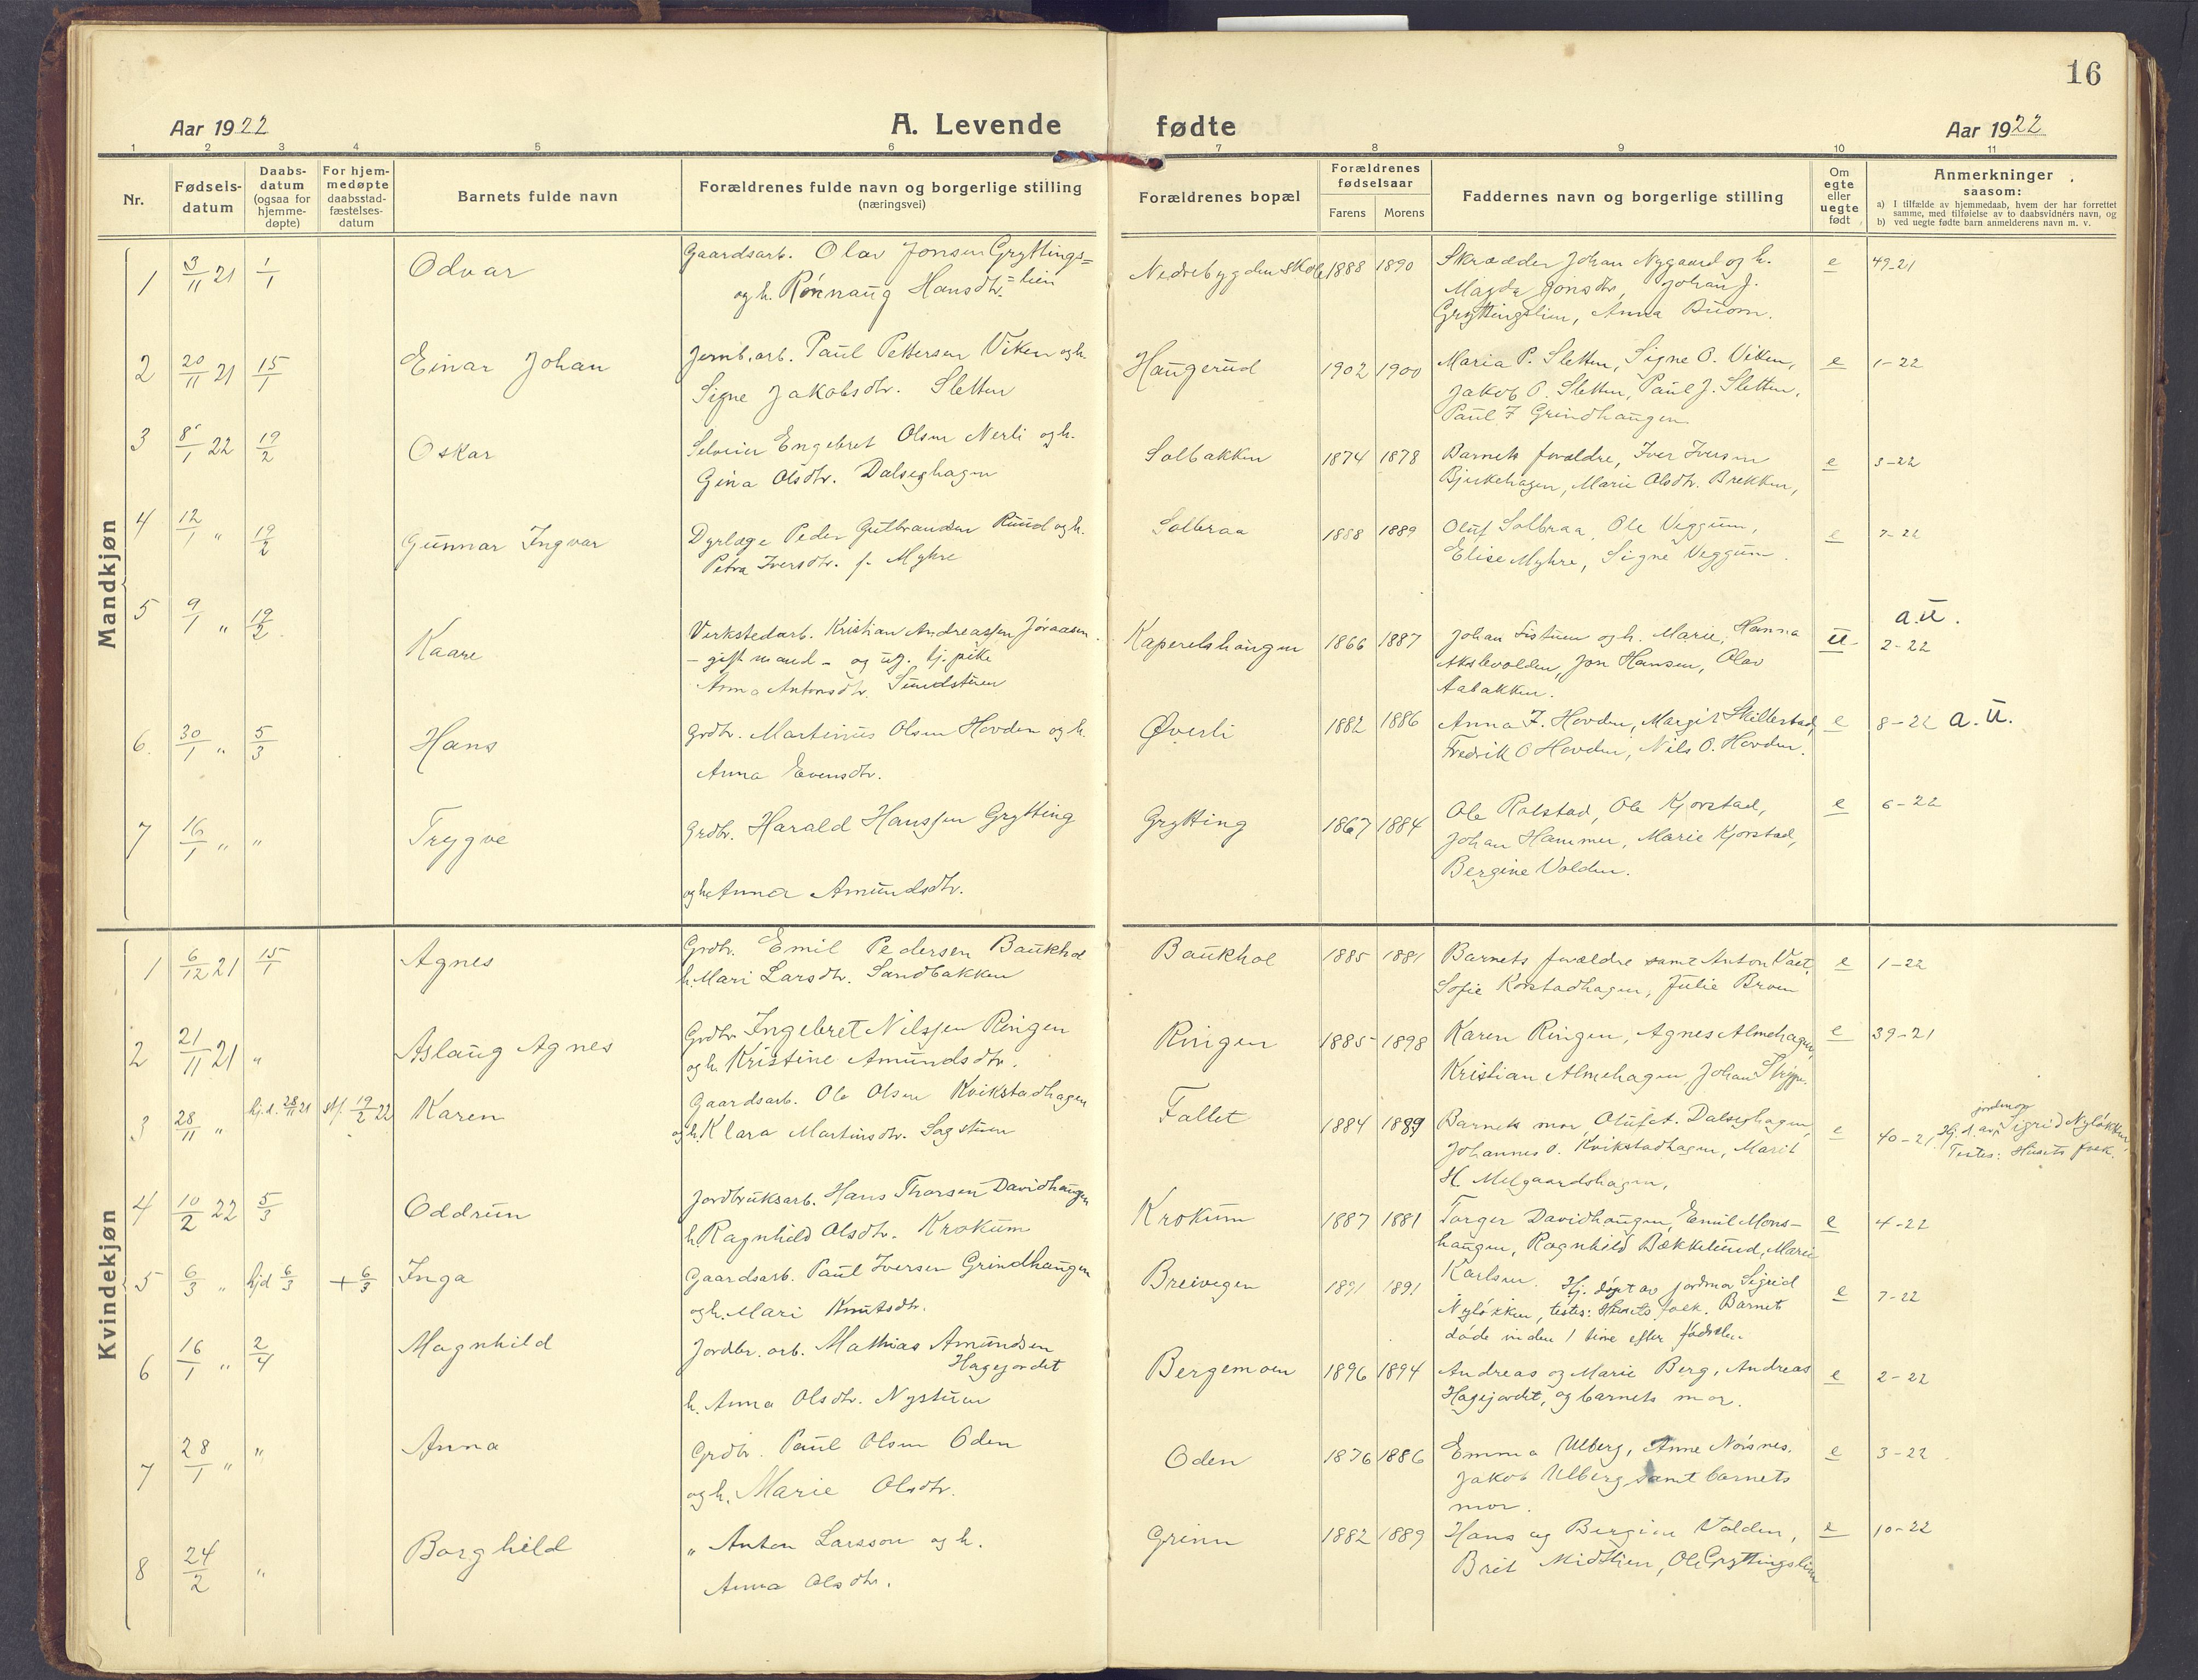 16
Aar 1922 A. Levende fødte Aar 1922
1 2 3 4 5 6 7 8 9 10 11
Nr.
Fødsels-
datum
Daabs-
datum
(ogsaa for
hjemme-
døpte)
For hjem-
medøpte
daabsstad-
fæstelses-
datum
Barnets fulde navn
Forældrenes fulde navn og borgerlige stilling
(næringsvei)
Forældrenes bopæl
Forældrenes
fødselsaar
Farens Morens
Faddernes navn og borgerlige stilling
Om
egte
eller
uegte
født
Anmerkninger
saasom:
a) I tilfælde av hjemmedaab, hvem der har forrettet
samme, med tilføielse av to daabsvidnérs navn, og
b) ved uegte fødte barn anmelderens navn m. v.
Mandkjøn
1 3/11 21 1/1 Odvar Gaardsarb. Olav Jonsen Gryttings=
=lien
og h. Rønnaug Hansdtr. Nedrebygden skole 1888 1890 Skrædder Johan Nygaard og h. e 49-21
Magda Jonsdtr, Johan J.
Gryttingslien, Anna Buom.
2 20/11 21 15/1 Einar Johan Jernb.arb. Paul Pettersen Viken og h. Haugerud 1902 1900 Maria P. Sletten, Signe O. Viken, e 1-22
Signe Jakobsdtr. Sletten Jakob O. Sletten, Paul J. Sletten,
Paul I Grindhaugen.
3 8/1 22 19/2 Oskar Selveier Engebret Olsen Nerli og h. Solbakken 1874 1878 Barnets forældre, Iver Iversen e 3-22
Gina Olsdtr. Dalseghagen Bjerkehagen, Marie Olsdtr. Brekken,
4 12/1 " 19/2 Gunnar Ingvar Dyrlæge Peder Gulbrandsen Ruud og h. Solbraa 1888 1889 Oluf Solbraa, Ole Veggum, e 7-22
Petra Iversdtr. f. Myhre Elise Myhre, Signe Veggum.
5 9/1 " 19/2 Kaare Verkstedarb. Kristian Andreassen Joraasen. Kaperelshaugen 1866 1887 Johan Sistuen og h. Marie, Hanna u. a.u.
2-22
- gift mand - og ug. tj. pike Jon Hansen, Olav
Anna Antonsdtr. Sundstuen Aabakken.
6. 30/1 " 5/3 Hans Grdbr. Martinius Olsen Hovden og h. Øverli 1882 1886 Anna F. Hovden, Margit Skillestad, e 8-22 a.u.
Anna Evensdtr. Fredrik O Hovden, Nils O. Hovden.
7 16/1 " " Trygve Grdbr. Harald Hanssen Grytting Grytting 1867 1884 Ole Rolstad, Ole Kjorstad, e 6-22
og h. Anna Amundsdtr. Johan Hammer, Marie Kjorstad,
Bergine Volden.
Kvindekjøn
1 6/12 21 15/1 Agnes Grdbr. Emil Pedersen Baukhol Baukhol 1885 1881 Barnets forældre samt Anton e 1-22
h. Mari Larsdtr. Sandbakken Sofie Korstadhagen, Julie Broen
2 21/11 21 " Aslaug Agnes Grdbr Ingebret Nilssen Ringen Ringen 1885 1898 Karen Ringen, Agnes Almehagen, e 39-21
og h. Kristine Amundsdtr. Kristian Almehagen, Johan
3 28/11 " hj.d. 28/11 21 stf. 19/2 22 Karen Gaardsarb. Ole Olsen Kvikstadhagen Fallet 1884 1889 Barnets mor, Oluf Dalseghagen, e 40-21 jordmor
Hj. d. av Sigrid Nyløkken,
Testes: Husets folk.
og h. Klara Martinsdtr. Sagstuen Johannes O. Kvikstadhagen, Marit
H Melgaardshagen,
4 10/2 22 5/3 Oddrun Jordbruksarb. Hans Thorsen Davidhaugen Krokum 1887 1881 Torger Davidhaugen, Emil Mons- e 4-22
h. Ragnhild Olsdtr. Krokum haugen, Ragnhild Bækkelund, Marie
Karlsen.
5 6/3 " hjd 6/3 + 6/3 Inga Gaardsarb. Paul Iversen Grindhaugen Breivegen 1891 1891 Hj. døpt av jordmor Sigrid e 7-22
og h. Mari Knutsdtr. Nyløkken, testes: Husets folk. Barnet
døde inden 1 time efter fødselen
6 16/1 " 2/4 Magnhild Jordbr. arb. Mathias Amundsen Bergemoen 1896 1894 Andreas og Marie Berg, Andreas e 2-22
Hagejordet
h. Anna Olsdtr. Nystuen Hagejordet, og barnets mor.
7 28/1 " " Anna Grdbr. Paul Olsen Oden Oden 1876 1886 Emma Ulberg, Anne Norsnes. e 3-22
og h. Marie Olsdtr. Jakob Ulberg samt barnets
mor.
8 24/2 " Borghild " Anton Larsson og h. Grinn 1882 1889 Hans og Bergine Volden, e 10-22
Anna Olsdtr. Brit Midtlien, Ole Gryttingslien